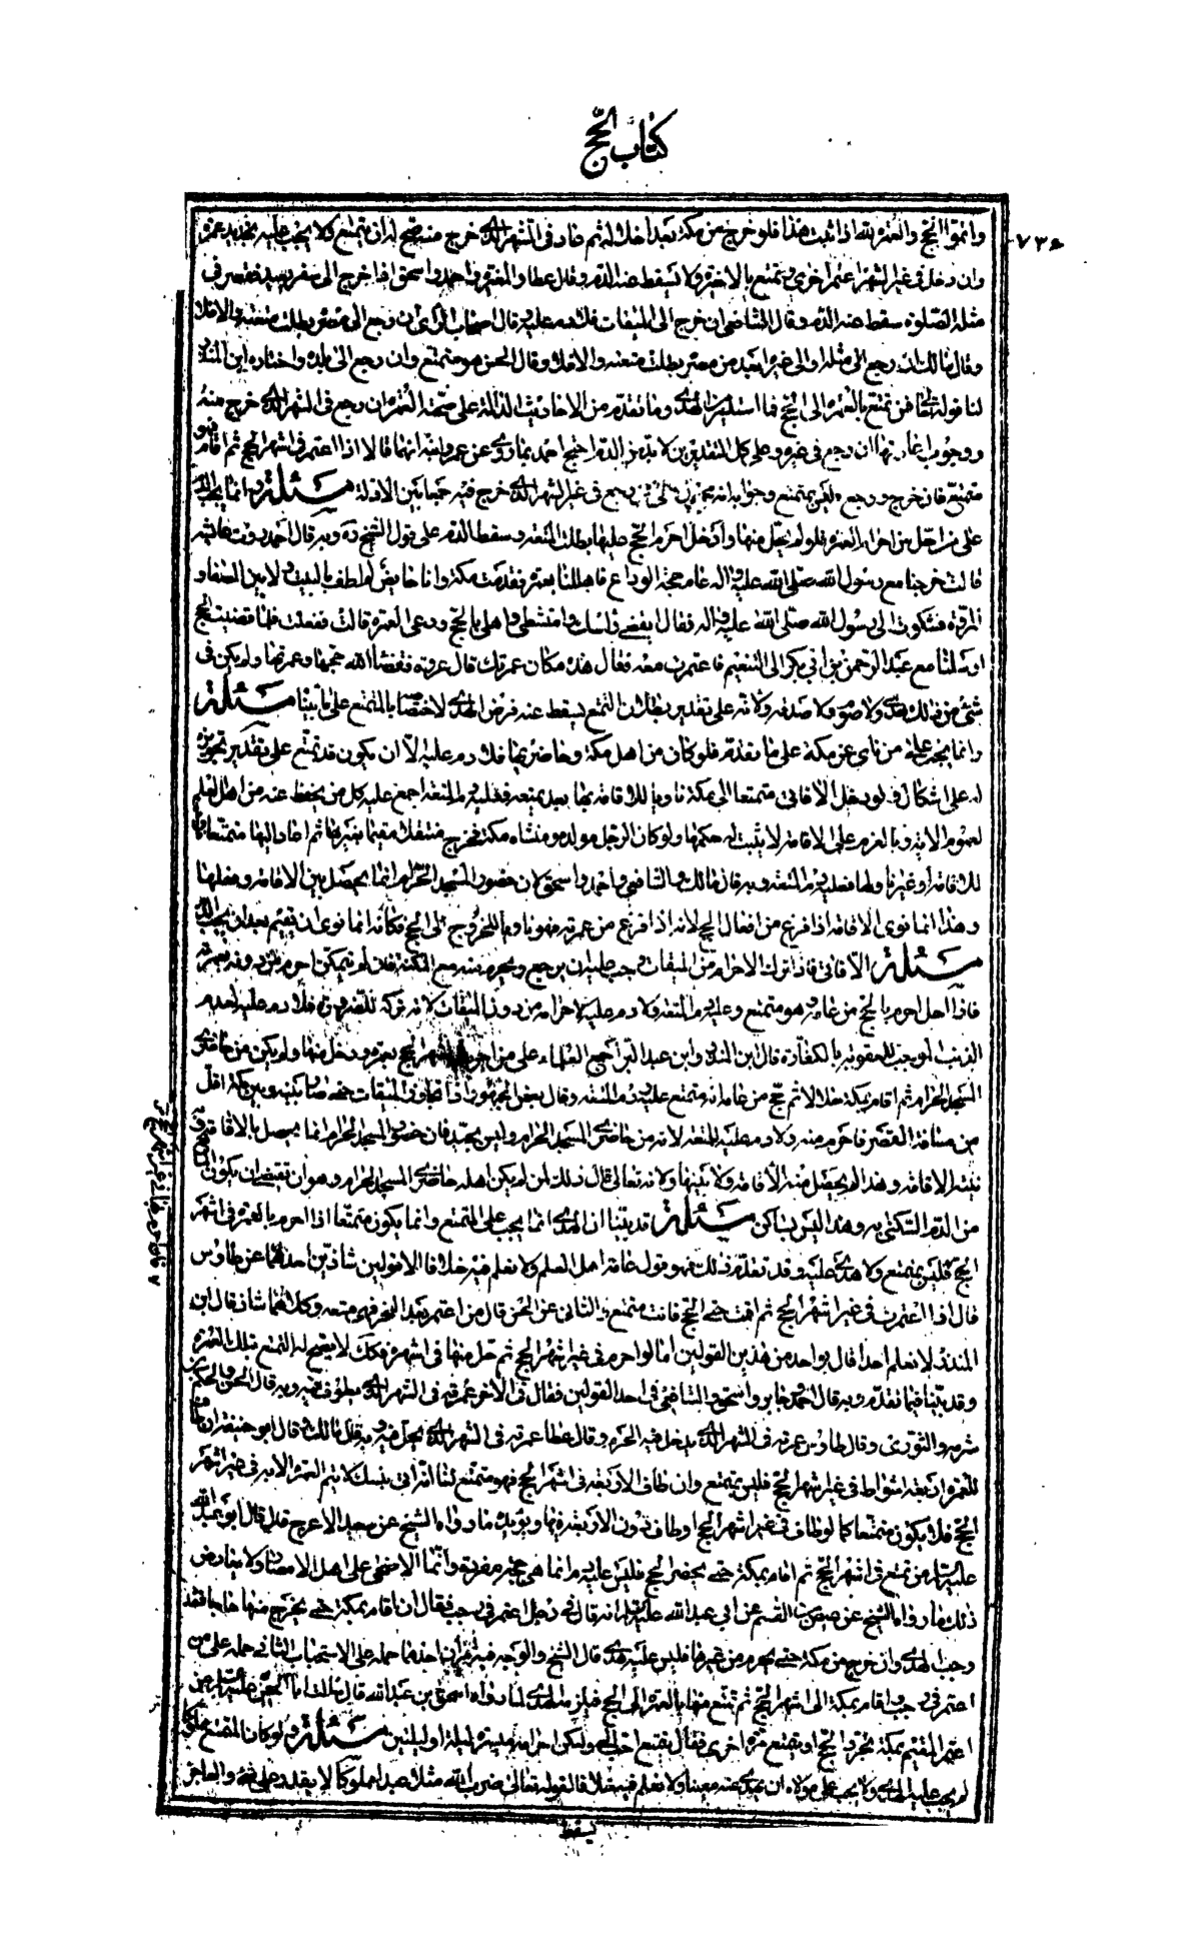 كتاب الحج
٧٣٤
واتموا الحج والعمرة لله اذا ثبت هذا فلو خرج من مكة بعد احلاله ثم عاد في الشهر الذي خرج منه صح له ان يتمتع ولا يجب عليه تجديد عمرة
وان دخل في غير الشهر اعتمر اخرى وتمتع بالاخيرة ولا يسقط عنه الدم وقال عطا والمغيرة واحمد واسحق اذا خرج الى سفر بعيد تقصر في
مثله الصلوة سقط عنه الدم وقال الشافعي ان خرج الى الميقات فلا دم عليه وقال اصحاب الراى ان رجع الى مصره بطلت متعته والا فلا
وقال مالك ان رجع الى مثله او الى غيره ابعد من مصره بطلت متعته والا فلا وقال الحسن هو متمتع وان رجع الى بلده واختاره ابن المنذر
لنا قوله تعالى فمن تمتع بالعمرة الى الحج فما استيسر من الهدى وما تقدم من الاحاديث الدالة على صحة العمرة ان رجع في الشهر الذي خرج منه
ووجوب اعادتها ان رجع في غيره وعلى كلا التقديرين لا بد من الدم احتج احمد بما روى عن عمر وابنه انهما قالا اذا اعتمر في اشهر الحج ثم اقام فهو
متمتع فان خرج ورجع فليس بمتمتع وجوابه انه محمول على من رجع في غير الشهر الذي خرج فيه جمعا بين الادلة مسئلة وانما يجب الدم
على من احل من احرام العمرة فلو لم يحل منها وادخل احرام الحج عليها بطلت المتعة وسقط الدم على قول الشيخ ره وبه قال احمد روت عايشة
قالت خرجنا مع رسول الله صلى الله عليه واله عام حجة الوداع فاهللنا بعمرة فقدمت مكة وانا حايض لم اطف بالبيت ولا بين الصفا و
المروة فشكوت الى رسول الله صلى الله عليه واله فقال انقضى راسك وامتشطى واهلى بالحج ودعى العمرة قالت ففعلت فلما قضيت الحج
ارسلنا مع عبد الرحمن بن ابي بكر الى التنعيم فاعتمرت معه فقال هذه مكان عمرتك قال عروة فقضى الله حجها وعمرتها ولم يكن في
شئ من ذلك هدى ولا صوم ولا صدقة ولانه على تقدير بطلان التمتع يسقط عنه فرض الهدى لاختصاصه بالمتمتع على ما بينا مسئلة
وانما يجب على من ناى عن مكة على ما تقدم فلو كان من اهل مكة وحاضريها فلا دم عليه الا ان يكون قد تمتع على تقدير تجويزه
له على اشكال ولو دخل الافاقى متمتعا الى مكة ناويا للاقامة بها بعد تمتعه فعليه دم المتعة اجمع عليه كل من يحفظ عنه من اهل العلم
لعموم الاية وبالعزم على الاقامة لا يثبت له حكمها ولو كان الرجل مولده ومنشاه مكة فخرج منتقلا مقيما بغيرها ثم عاد اليها متمتعا ناويا
للاقامة او غير ناو لها فعليه دم المتعة وبه قال مالك والشافعي واحمد واسحق لان حضور المسجد الحرام انما يحصل بنية الاقامة وفعلها
وهذا انما نوى الاقامة اذا فرغ من افعال الحج لانه اذا فرغ من عمرته فهو ناو بالخروج الى الحج فكانه انما نوى ان يقيم بعد ان يجب الدم
مسئلة الافاقى اذا ترك الاحرام من الميقات وجب عليه ان يرجع ويحرم منه مع المكنة فان لم يتمكن احرم من دونه بعمرته
فاذا احل احرم بالحج من عامه وهو متمتع وعليه دم المتعة ولا دم عليه لاحرامه من دون الميقات لانه تركه للضرورة فلا دم عليه لعدم
الذنب الموجب للعقوبة بالكفارة قال ابن المنذر وابن عبد البر اجمع العلماء على من احرم في اشهر الحج بعمرة ودخل منها ولم يكن من حاضرى
المسجد الحرام ثم اقام بمكة حلالا ثم حج من عامه انه متمتع عليه دم المتعة وقال بعض الجمهور اذا تجاوز الميقات حتى صار بينه وبين مكة اقل
من مسافة القصر فاحرم منه ولا دم عليه للمتعة لانه من حاضرى المسجد الحرام وليس بجيد فان حضور المسجد الحرام انما يحصل بالاقامة وفى
نيته الاقامة وهذا لم يحصل منه الاقامة ولا نيتها ولانه تعالى قال ذلك لمن لم يكن اهله حاضرى المسجد الحرام وهو ان يقتضى ان يكون المانع
من الدم السكنى به وهذا ليس بساكن مسئلة قد بينا ان الهدى انما يجب على المتمتع وانما يكون متمتعا اذا احرم بالعمرة في اشهر
الحج فليس بمتمتع ولا هدى عليه وقد تقدم ذلك وهو قول عامة اهل العلم ولا نعلم فيه خلافا الا قولين شاذين احدهما عن طاوس
قال اذا اعتمرت في غير اشهر الحج ثم اقمت حتى الحج فانت متمتع والثانى عن الحسن قال من اعتمر بعد النحر فهي متعة وكلاهما شاذ قال ابن
المنذر لا نعلم احدا قال بواحد من هذين القولين اما لو احرم في غير اشهر الحج ثم حل منها في اشهره فكك لا يصح له التمتع بتلك العمرة
وقد بينا فيما تقدم وبه قال احمد وجابر واسحق والشافعي في احد القولين وقال في الاخر عمرته في الشهر الذي يطوف فيه وبه قال الحسن والحكم وابن
شبرمه والثورى وقال طاوس عمرته في الشهر الذي يدخل فيه الحرم وقال عطا عمرته في الشهر الذي يحل فيه وبه قال مالك وقال ابو حنيفة ان طاف
للعمرة اربعة اشواط في غير اشهر الحج فليس بمتمتع وان طاف الاربعة في اشهر الحج فهو متمتع لنا انه اتى بنسك لا يتم العمرة الا به في غير اشهر
الحج فلا يكون متمتعا كما لو طاف في غير اشهر الحج او طاف دون الاربعة فيها ويؤيده ما رواه الشيخ عن سعيد الاعرج قال قال ابو عبد الله
عليه السلام من تمتع في اشهر الحج ثم اقام بمكة حتى يحضر الحج فليس عليه دم انما هي حجة مفردة وانما الاضحى على اهل الامصار ولا يعارض
ذلك ما رواه الشيخ عن عيص بن القسم عن ابي عبد الله عليه السلام انه قال في رجل اعتمر في رجب فقال ان اقام بمكة حتى يخرج منها حاجا فقد
وجب الهدى وان خرج من مكة حتى يحرم من غيرها فليس عليه هدى قال الشيخ والوجه فيه امران احدهما حمله على الاستحباب الثانى حمله على من
اعتمر في رجب واقام بمكة الى اشهر الحج ثم تمتع منها بالعمرة الى الحج فيلزمه الهدى لما رواه اسحق بن عبد الله قال سالت ابا الحسن عليه السلام عن
المعتمر المقيم بمكة يجرد الحج او يتمتع مرة اخرى فقال يتمتع احب الى وليكن احرامه من مسيرة ليلة او ليلتين مسئلة ولو كان المتمتع مملوكا
لم يجب عليه الهدى ولا يجب على مولاه ان يهدى عنه معينا ولا نعلم فيه خلافا لقوله تعالى ضرب الله مثلا عبدا مملوكا لا يقدر على شئ والعاجز
يسقط